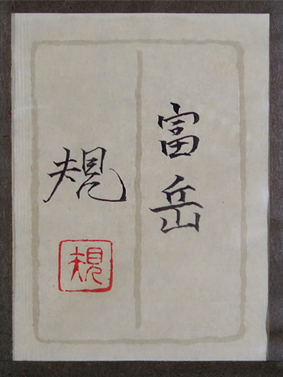 富岳
規
規